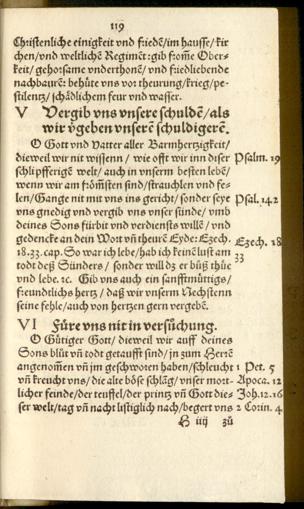 119
Christenliche einigkeit vnd friedẽ/im hausse/kir
chen/vnd weltlichẽ Regimẽt:gib fromẽ Ober-
keit/gehorsame vnderthonẽ/vnd friedliebende
nachbaurẽ: behüte vns vor theurung/krieg/pe-
stilentz/schädlichem feur vnd wasser.
V Vergib vns vnsere schuldẽ/als
wir ṽgeben vnserẽ schuldigerẽ.
O Gott vnd Vatter aller Barmhertzigkeit/
dieweil wir nit wissenn/ wie offt wir inn diser Psalm. 19
schlipfferigẽ welt/auch in vnserm besten lebẽ/
wenn wir am frömsten sind/strauchlen vnd fe-
len/Gange nit mit vns ins gericht/sonder seye Psal. 142
vns gnedig vnd vergib vns vnser sünde/vmb
deines Sons fürbit vnd verdiensts willẽ/vnd
gedencke an dein Wort vñ theurẽ Eyde: Ezech. Ezech. 18
18.33. cap. So war ich lebe/hab ich keinẽ lust am 33
todt deß Sünders/ sonder will dz er büß thüe
vnd lebe. ꝛc. Gib vns auch ein sanfftmüttigs/
freundtlichs hertz/ daß wir vnserm Nechstenn
seine fehle/auch von hertzen gern vergebẽ.
VI Füre vns nit in versůchung.
O Gütiger Gott/ dieweil wir auff deines
Sons blůt vñ todt getaufft sind/jn zum Herrẽ
angenom̃en vñ jm geschworen haben/schleucht 1 Pet. 5
vñ kreucht vns/die alte böse schlãg/vnser mort- Apoca. 12
licher feinde/der teuffel/der printz vñ Gott die- Joh. 12. 16
ser welt/tag vñ nacht listiglich nach/begert vns 2 Corin. 4
H iiij zů